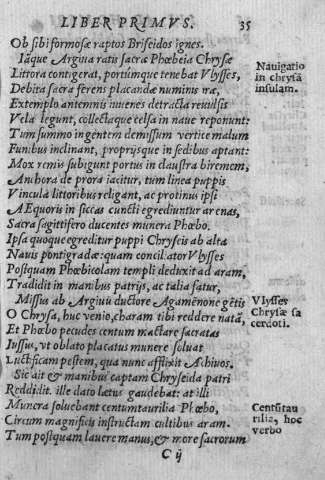 LIBER PRIMVS. 35
Ob sibi formosæ raptos Briseidos ignes.
Iāque Argiua ratis sacræ Phœbeia Chrysæ
Littora contigerat, portumque tenebat Vlysses,
Nauigatio
in chrysā
insulam.
Debita sacra ferens placandæ numinis iræ,
Extemplo antemnis niueis detracta reuulsis
Vela legunt, collectaque celsa in naue reponunt:
Tum summo ingentem demissum vertice malum
Funibus inclinant, propriisque in sedibus aptant:
Mox remis subigunt portus in claustra biremem,
Anchora de prora iacitur, tum linea puppis
Vincula littoribus religant, ac protinus ipsi
AEquoris in siccas cuncti egrediuntur arenas,
Sacra sagittifero ducentes munera Phœbo.
Ipsa quoque egreditur puppi Chryseis ab alta
Nauis pontigradæ: quam conciliator Vlysses
Postquam Phœbicolam templi deduxit ad aram,
Tradidit in manibus patrijs, ac talia fatur,
Missus ab Argiuū ductore Agamēnone gētis
O Chrysa, huc venio, charam tibi reddere natā,
Vlysses
Chrysæ sa
cerdoti.
Et Phœbo pecudes centum mactare sacratas
Iussus, vt oblato placatus munere soluat
Luctificam pestem, qua nunc afflixit Achiuos.
Sic ait & manibus captam Chryseida patri
Reddidit. ille dato lætus gaudebat: at illi
Munera soluebant centumtaurilia Phœbo,
Circum magnificis instructam cultibus aram.
Centūtau
rilia, hoc
verbo
Tum postquam lauere manus, & more sacrorum
C ij